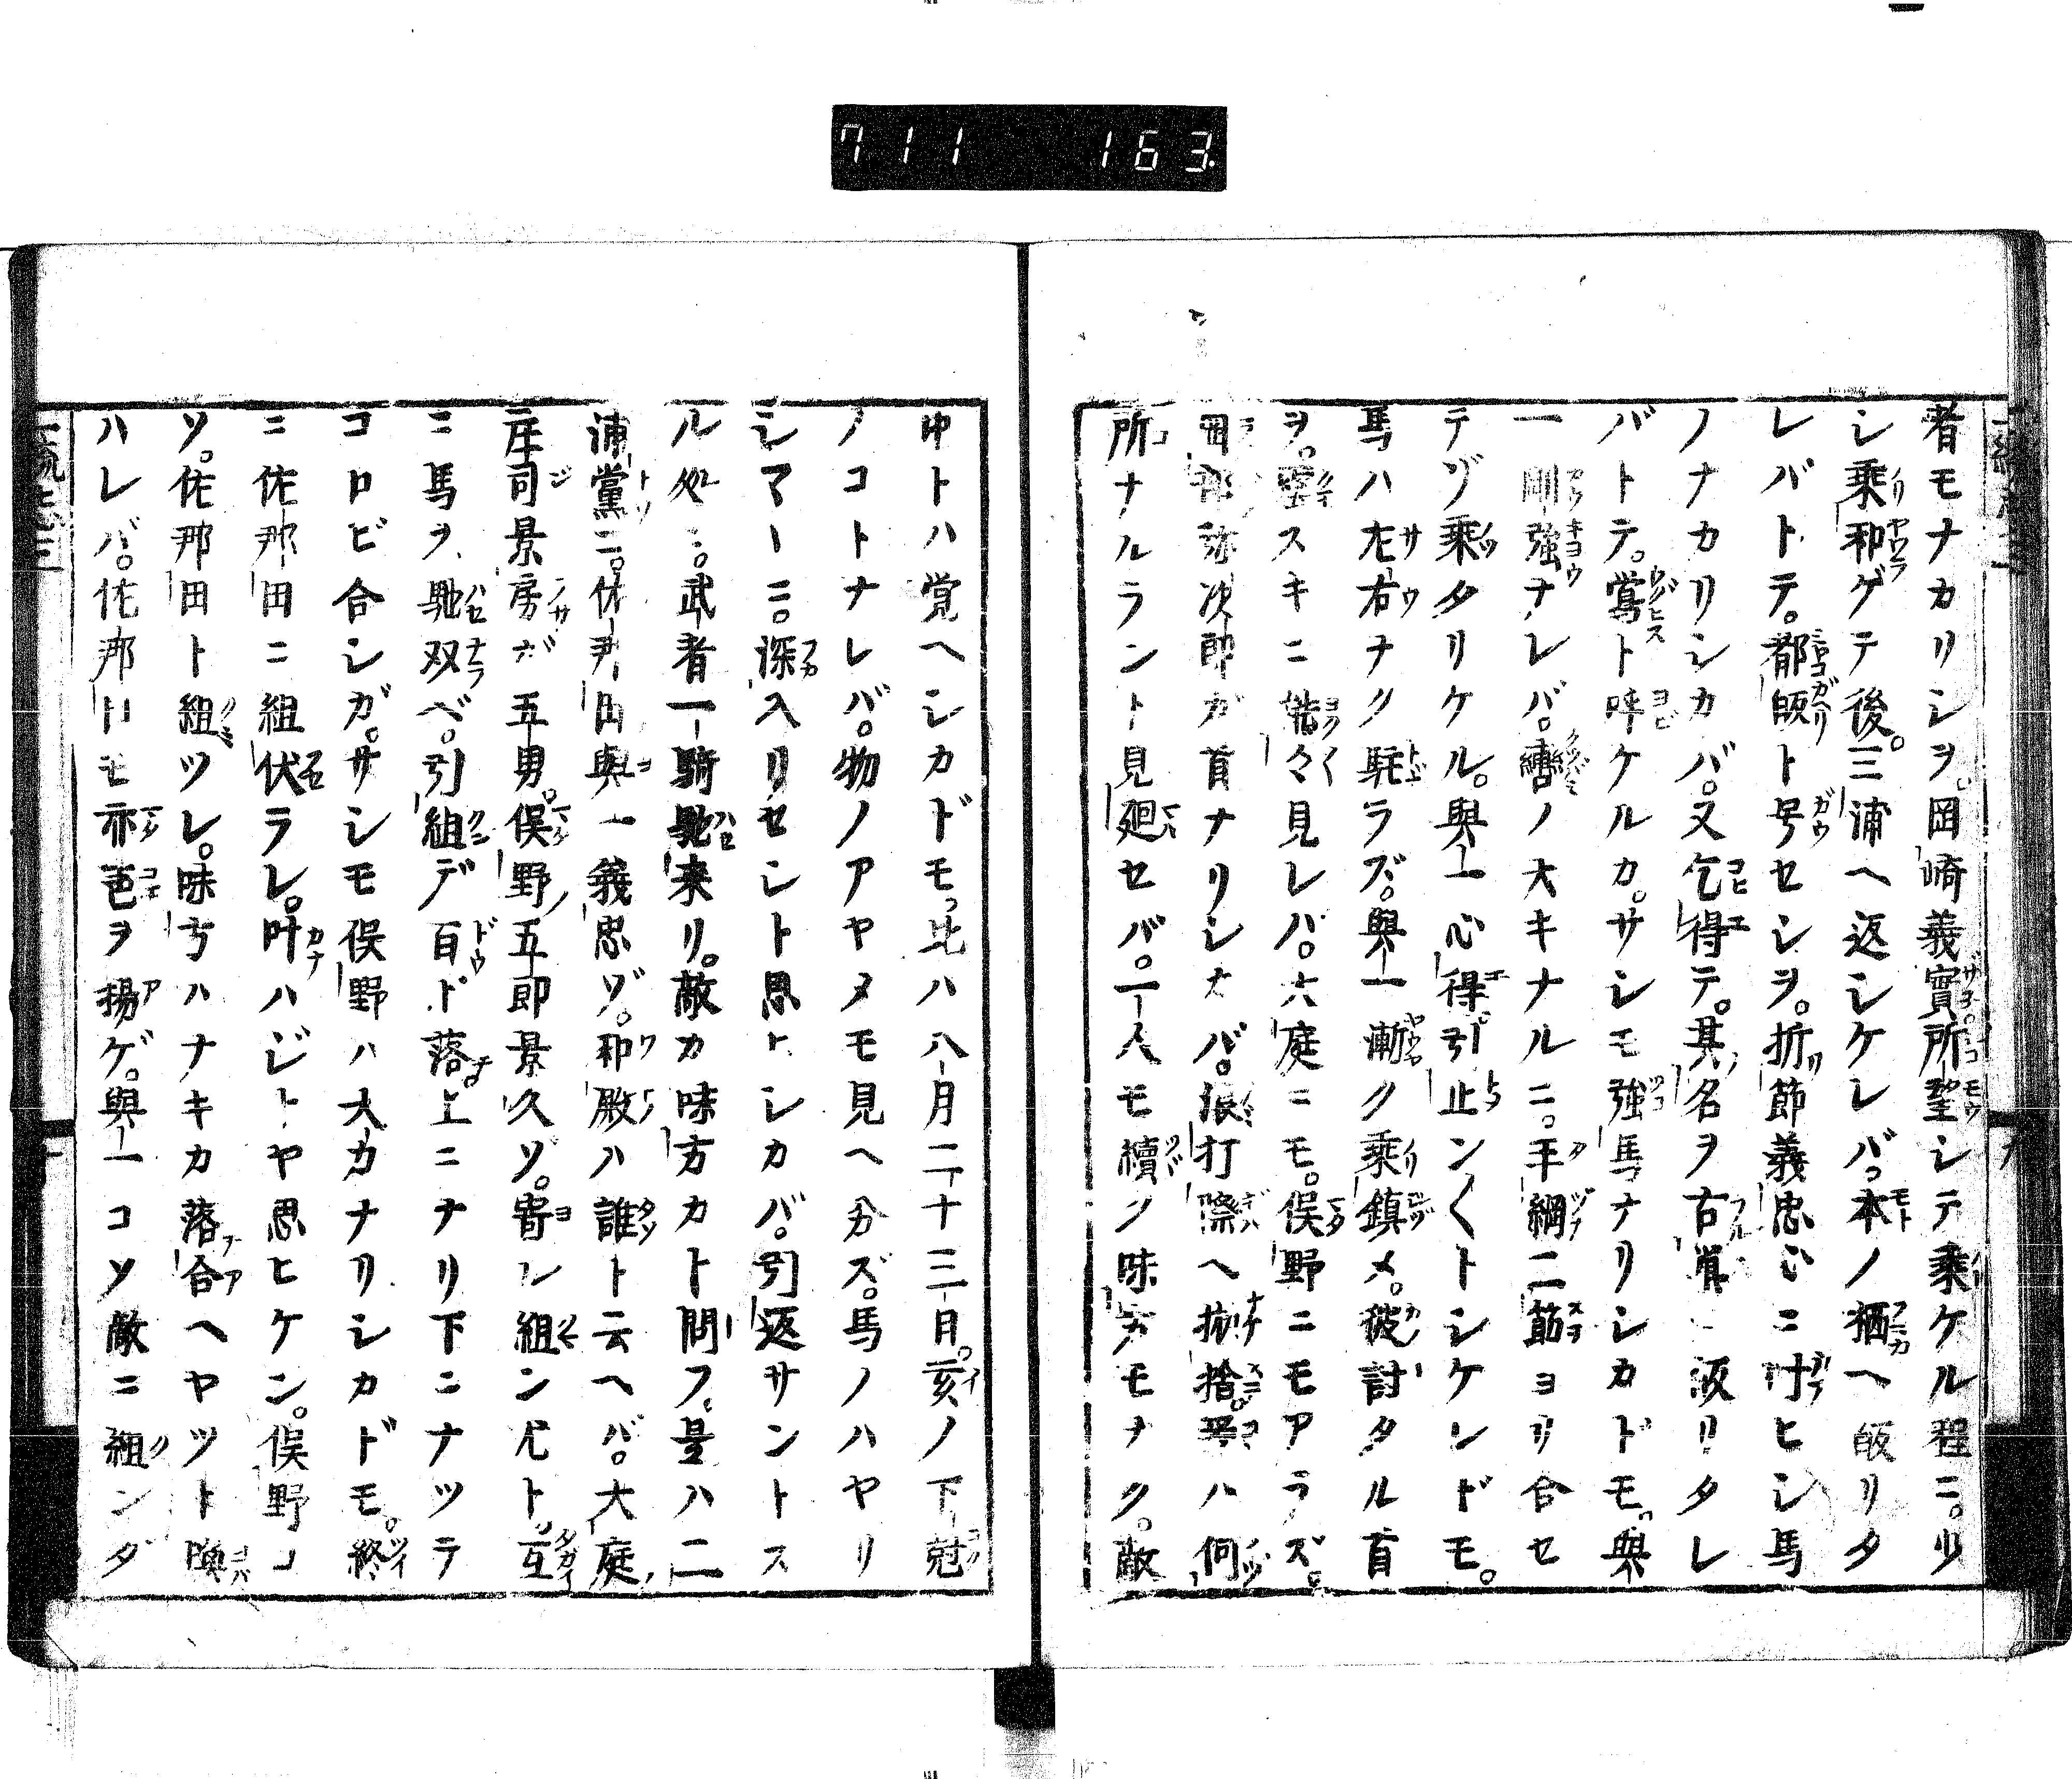 711 163
者モナカリシヲ。岡崎義實所望シテ乘ケル程ニ。少
シ乘和ゲテ後。三浦ヘ返シケレバ。本ノ栖ヘ皈リタ
レバトテ。都皈ト号セシヲ。折節義忠ニ付ヒシ馬
ノナカリシカバ。又乞得テ。其名ヲ古巣ニ皈リタレ
バトテ。鴬ト呼ケルカ。サシモ強馬ナリシカドモ。與
一剛強ナレバ。轡ノ大キナルニ。手綱二筋ヨリ合セ
テゾ乘タリケル。與一心得。引止ン〱トシケレドモ。
馬ハ左右ナク駐ラズ。與一漸ク乘鎮メ。彼討タル首
ヲ。雲スキニ能々見レハ。大庭ニモ。俣野ニモアラズ。
岡部弥次郎ガ首ナリシカバ。浪打際ヘ抛捨。爰ハ何
所ナルラント見廻セバ。一人モ續ク味方モナク。敵
中トハ覚ヘシカドモ。比ハ八月二十三日。亥ノ下尅
ノコトナレバ。物ノアヤメモ見ヘ分ズ。馬ノハヤリ
シマーニ。深入リセシト思トシカバ。引返サントス
ル処ニ。武者一騎馳来リ。敵カ味方カト問フ。是ハ三
浦黨ニ。佐那田與一義忠ゾ。和殿ハ誰ト云ヘバ。大庭
庄司景房ガ五男。俣野五郎景久ゾ。寄レ組ン尤ト。互
ニ馬ヲ馳双ベ。引組デ百ド落。上ニナリ下ニナツテ
コロビ合シガ。サシモ俣野ハ大力ナリシカドモ。終
ニ佐那田ニ組伏ラレ。叶ハジトヤ思ヒケン。俣野コ
ソ。佐那田ト組ツレ。味方ハナキカ落合ヘヤツト喚
ハレバ。佐那田モ亦声ヲ揚ゲ。與一コソ敵ニ組ンダ